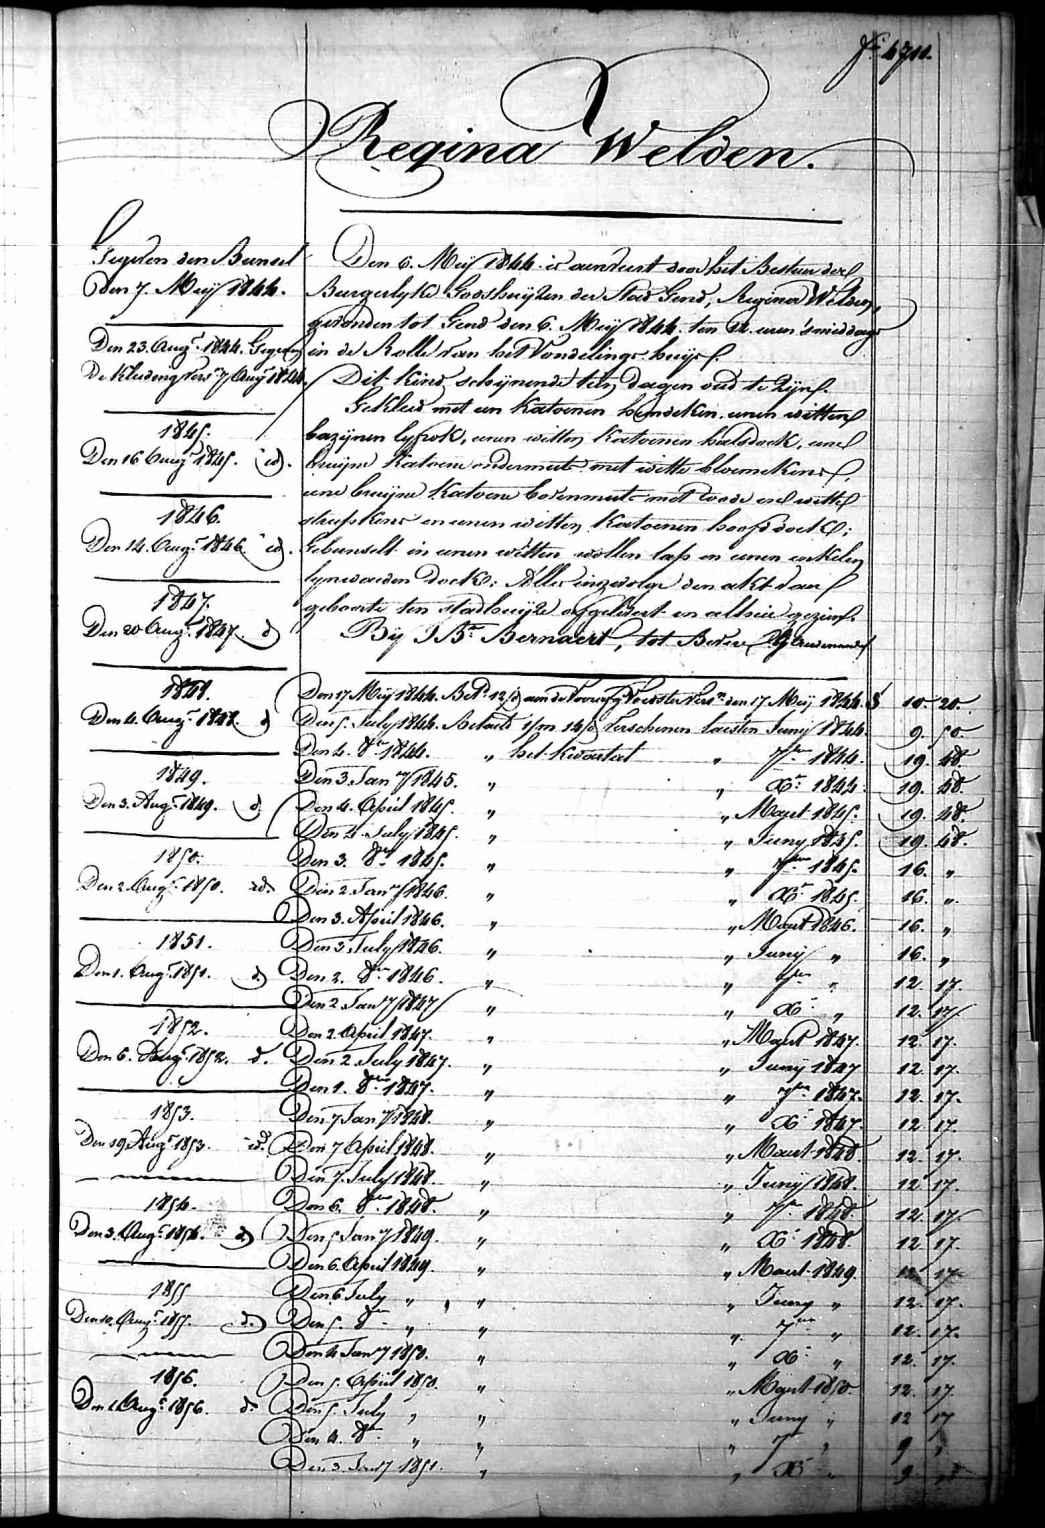 Regina Welden.
Gegeven den Bundel
Den 7. Meij 1844.
Den 23. Augt 1844. Gegeven
de Kleeding vers 7 Augt 1844.
1845.
Den 16 Augt 1845. id.
1846.
Den 14. Augt 1846. id.
1847.
Den 20 Augt 1847. d
1848.
Den 4. Augt 1848. d
1849.
Den 3. Augt 1849. d.
1850.
Den 2. Augt 1850. id.
1851.
Den 1. Augt 1851. d
1852.
Den 6. Augt 1852. d.
1853.
Den 19 Augt 1853. id.
1854.
Den 3. Augt 1854. d
1855
Den 10. Augt 1855. d.
1856.
Den Augt 1856. d.
Den 6. Meij 1844 is aenveert door het Bestuer der
Burgerlyke Godshuijzen der Stad Gend, Regina Welden,
gevonden tot Gend den 6. Meij 1844 ten 12. uren 'smiddags
in de Rolle van het Vondelingshuijs.
Dit kind schijnende tien dagen oud te zijn.
Gekleed met een katoenen hemdeken, eenen witten
bazijnen lyfrok, eenen witten katoenen halsdoek, eene
bruijne katoene ondermuts met witte bloemekens,
eene bruijne katoene bovenmuts met roode en witte
streepkens en eenen witten katoenen hoofddoek;
Gebundelt in eenen witten wollen lap en eenen enkelen
lynwaeden doek; Alles ingevolge den akt van
geboorte ten stadhuijze afgelevert en alhier gezien.
Bij J. Bte Bernaert, tot Bevere bij Audenaerde
Den 17 Meij 1844. Betd 12/ aen de Voorenzg Voedster Vers den 17 Meij 1844. 10. 20.
Den 5. July 1844. Betaelt Verschenen laesten Juny 1844. 9. 50
Den 4. 8er 1844. " het Kwartael " 7ber 1844. 19. 48.
Den 3. Jany 1845. " " Xr 1844. 19. 48.
Den 4. April 1845. " " Maert 1845. 19. 48.
Den 4. July 1845. " " Juny 1845. 19. 48.
Den 3. 8er 1845. " " 7ber 1845. 16. "
Den 2 Jany 1846. " " Xr 1845. 16. ".
Den 3. April 1846. " " Maert 1846. 16. "
Den 3. July 1846. " " Juny " 16. "
Den 2. 8er 1846. " " 7ber " 12. 17.
Den 2 Jany 1847 " " Xr " 12. 17
Den 2 April 1847. " " Maert 1847. 12. 17.
Den 2 July 1847. " " Juny 1847 12. 17.
Den 1. 8ber 1847. " " 7ber 1847. 12. 17.
Den 7 Jany 1848. " " Xr 1847. 12. 17
Den 7 April 1848. " " Maert 1848. 12. 17.
Den 7. July 1848. " " Juny 1848. 12. 17.
Den 6. 8ber 1848. " " 7r 1848. 12. 17.
Den 5 Jany 1849. " " Xr 1848 12. 17.
Den 6. April 1849. " " Maert 1849. 12. 17
Den 6 July " " " Juny " 12. 17.
Den 5. 8ber " " " 7ber " 12. 17.
Den 4 Jany 1850. " " Xr " 12. 17.
Den 5. April 1850. " " Maert 1850 12. 17.
Den 5. July " " " Juny " 12 17
Den 4. 8er " " " 7r " 9 "
Den 3. Jany 1851. " " Xr " 9